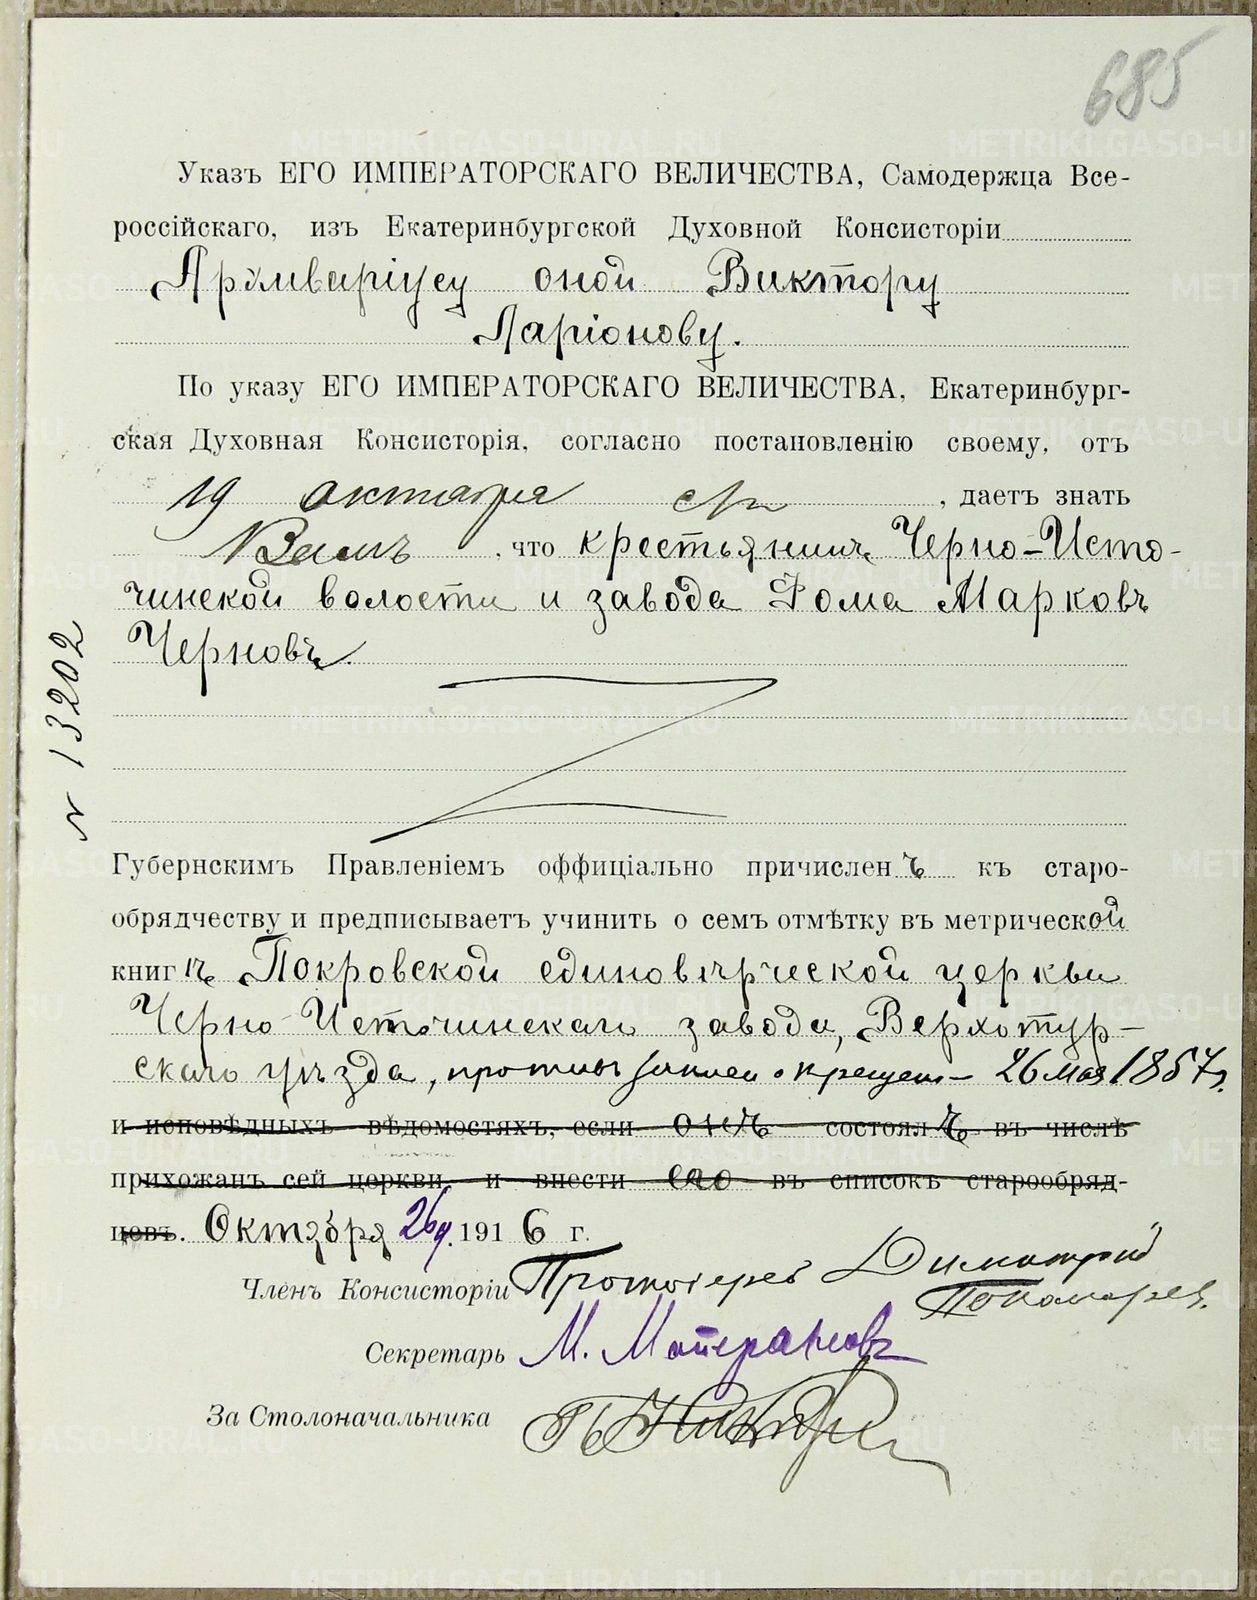 685
Указъ ЕГО ИМПЕРАТОРСКАГО ВЕЛИЧЕСТВА, Самодержца Все-
россійскаго, изъ Екатеринбургской Духовной Консисторіи
Архиваріусу оной Виктору
Ларіонову.
По указу ЕГО ИМПЕРАТОРСКАГО ВЕЛИЧЕСТВА, Екатеринбург-
ская Духовная Консисторія, согласно постановленію своему, отъ
19 октября с/г, даетъ знать
Вамъ, что крестьянинъ Черно-Исто-
чинской волости и завода Фома Марковъ
Черновъ.
№ 13202
Губернскимъ Правленіемъ оффиціально причисленъ къ старо-
обрядчеству и предписываетъ учинить о семъ отмѣтку въ метрической
книгѣ Покровской единовѣрческой церкви
Черно-Источинскаго завода, Верхотур-
скаго уѣзда, противъ записи о крещен 26 мая 1857 г.
и исповѣдныхъ вѣдомостяхъ, если онъ состоялъ въ числѣ
прихожанъ сей церкви, и внести его въ списокъ старообряд-
цевъ. Октября 26 д. 1916 г.
Членъ Консисторіи Протоіерей Димитрій
Пономарев.
Секретарь М.
За Столоначальника
METRIKI.GASO-URAL.RU